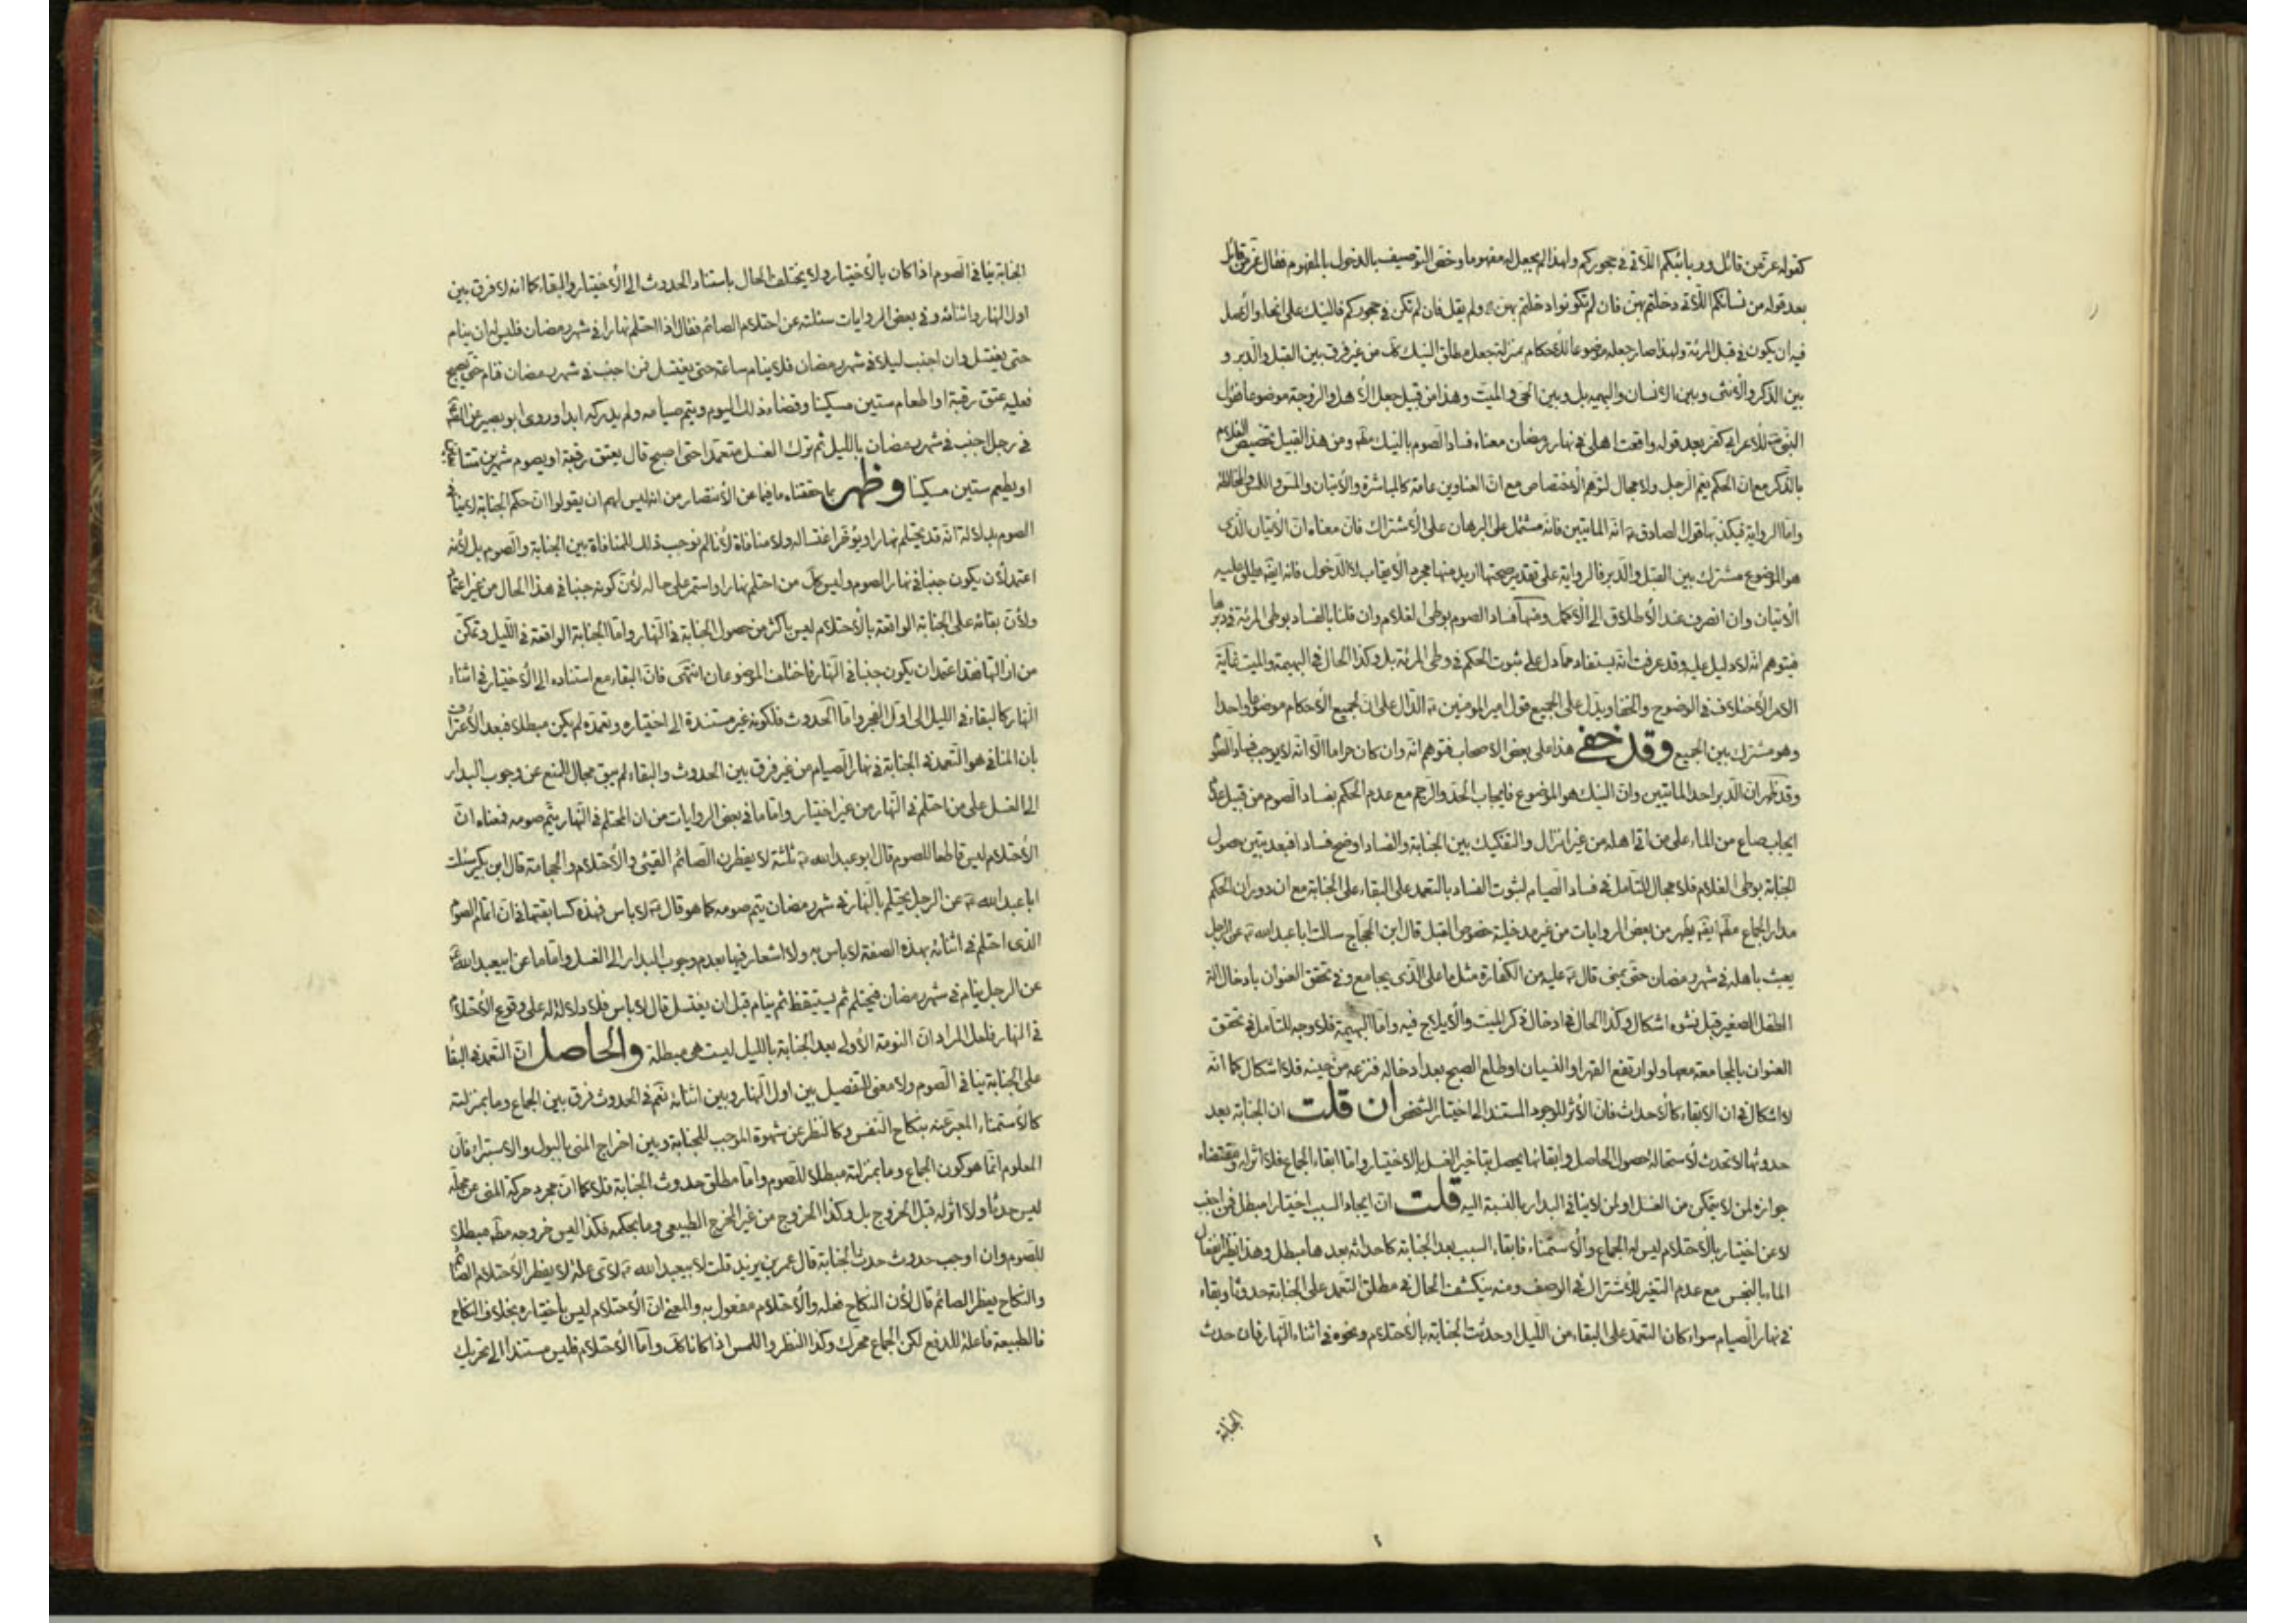 كقوله عز من قائل وربائبكم اللآتى فى حجوركم ولهذا لم يجعل له مفهوما وخص التوصيف بالدخول بالمفهوم فقال عز من قائل
بعد قوله من نسائكم اللآتى دخلتم بهن فان لم تكونوا دخلتم بهن ولم يقل فان لم تكن فى حجوركم فالنيك على انحاء والأصل
فيه ان يكون فى قبل المرئة ولهذا صار جعله موضوعا للاحكام بمنزلة جعل مطلق النيك كك من غير فرق بين القبل والدبر و
بين الذكر والأنثى وبين الانسان والبهيمة بل وبين الحى والميت وهذا من قبيل جعل الأهل والزوجة موضوعا فقول
النبى ص للأعرابى كفر بعد قوله واقعت اهلى فى نهار رمضان معناه فساد الصوم بالنيك مطم ومن هذا القبيل تخصيص الغلام
بالذكر مع ان الحكم يعم الرجل ولا مجال لتوهم الأختصاص مع ان العناوين عامة كالمباشرة والأتيان والمس واللمس والمخالطة
واما الرواية فيكذبها قول الصادق ع انه المأتيين فانه مشتمل على البرهان على الأشتراك فان معناه ان الأتيان الذى
هو الموضوع مشترك بين القبل والدبر فالرواية على تقدير صحتها اريد منها مجرد الأيقاب لا الدخول فانه ايضا يطلق عليه
الأتيان وان انصرف عند الأطلاق الى الأكمل ومنها فساد الصوم بوطى الغلام وان قلنا بالفساد بوطى المرئة فى دبرها
فيتوهم انه لا دليل عليه وقد عرفت انه يستفاد مما دل على ثبوت الحكم فى وطى المرئة بل وكذا الحال فى البهيمة والميت غاية
الامر الأختلاف فى الوضوح والخفاء ويدل على الجميع قول امير المومنين ع الدال على ان لجميع الأحكام موضوعا واحدا
وهو مشترك بين الجميع وقد خفى هذا على بعض الاصحاب فتوهم انه وان كان حراما الا انه لا يوجب فساد الصوم
وقد ظهر ان الدبر احد المأتيين وان النيك هو الموضوع فايجاب الحد والرجم مع عدم الحكم بفساد الصوم من قبيل عدم
ايجاب صاع من الماء على من اتى اهله من غير انزال والتفكيك بين الجنابة والفساد اوضح فسادا فبعد تبين حصول
الجنابة بوطى الغلام فلا مجال للتامل فى فساد الصيام لثبوت الفساد بالتعمد على البقاء على الجنابة مع ان دوران الحكم
مدار الجماع مطم ايضا يظهر من بعض الروايات من غير مدخلية خصوص القبل قال ابن الحجاج سالت ابا عبد الله ع عن الرجل
يعبث باهله فى شهر رمضان حتى يمنى قال ع عليه من الكفارة مثل ما على الذى يجامع وفى تحقق العنوان بادخال الة
الطفل الصغير قبل نشوه اشكال وكذا الحال فى ادخال ذكر الميت والأيلاج فيه واما البهيمة فلا وجه للتامل فى تحقق
العنوان بالمجامعة معها ولو ارتفع القهر او النسيان او طلع الصبح بعد ادخاله فنزعه من حينه فلا اشكال كما انه
لا اشكال فى ان الابقاء كالأحداث فان الأثر للوجود المستند الى اختيار الشخص ان قلت ان الجنابة بعد
حدوثها لا تحدث لأستحالة حصول الحاصل وابقائها يحصل بتاخير الغسل بالاختيار واما ابقاء الجماع فلا اثر له ومقتضاه
جوازه لمن لا يتمكن من الغسل او لمن لا ينافى البدار بالنسبة اليه قلت ان ايجاد السبب اختيارا مبطل فمن اجنب
لا عن اختيار بالأحتلام ليس له الجماع والأستمناء فابقاء السبب بعد الجنابة كاحداثه بعدها مبطل وهذا نظير انفعال
الماء بالنجس مع عدم التغير للأشتراك فى الوصف ومنه ينكشف الحال فى مطلق التعمد على الجنابة حدوثا وبقاء
فى نهار الصيام سواء كان التعمد على البقاء من الليل او حدثت الجنابة بالأحتلام ونحوه فى اثناء النهار فان حدث
الجنابة
الجنابة ينافى الصوم اذا كان بالأختيار ولا يختلف الحال باستناد الحدوث الى الأختيار والبقاء كما انه لا فرق بين
اول النهار واثنائه وفى بعض الروايات سئلته عن احتلام الصائم فقال اذا احتلم نهارا فى شهر رمضان فليس له ان ينام
حتى يغتسل وان اجنب ليلا فى شهر رمضان فلا ينام ساعة حتى يغتسل فمن اجنب فى شهر رمضان فنام حتى يصبح
فعليه عتق رقبة او اطعام ستين مسكينا وقضاء ذلك اليوم ويتم صيامه ولم يدركه ابدا وروى ابو بصير عن
فى رجل اجنب فى شهر رمضان بالليل ثم ترك الغسل متعمدا حتى اصبح قال يعتق رقبة او يصوم شهرين متتابعين
او يطعم ستين مسكينا وظهر بما حققناه ما فيما عن الأنتصار من انه ليس لهم ان يقولوا ان حكم الجنابة لا ينافى
الصوم بدلالة انه قد يحتلم نهارا ويؤخر اغتساله ولا منافاة لأنا لم نوجب ذلك للمنافاة بين الجنابة والصوم بل لأنه
اعتمد لأن يكون جنبا فى نهار الصوم وليس كل من احتلم نهارا واستمر على حاله لأن كونه جنبا فى هذا الحال من غير اعتماد
ولأن بقائه على الجنابة الواقعة بالأحتلام ليس بأكثر من حصول الجنابة فى النهار واما الجنابة الواقعة فى الليل وتمكن
من ازالتها فقد اعتمد ان يكون جنبا فى النهار فاختلف الموضوعان انتهى فان البقاء مع استناده الى الأختيار فى اثناء
النهار كالبقاء فى الليل الى اول الفجر واما الحدوث فلكونه غير مستندة الى اختياره وتعمده لم يكن مبطلا فبعد الأعتراف
بان المنافى هو التعمد فى الجنابة فى نهار الصيام من غير فرق بين الحدوث والبقاء لم يبق مجال للمنع عن وجوب البدار
الى الغسل على من احتلم فى النهار من غير اختيار واما ما فى بعض الروايات من ان المحتلم فى النهار يتم صومه فمعناه ان
الأحتلام ليس قاطعا للصوم قال ابو عبد الله ع ثلثة لا يفطرن الصائم القيئى والأحتلام والحجامة قال ابن بكير سئلت
ابا عبد الله ع عن الرجل يحتلم بالنهار فى شهر رمضان يتم صومه كما هو قال ع لا باس فهذه كسابقتها فى ان اتمام الصوم
الذى احتلم فى اثنائه بهذه الصفة لا باس به ولا اشعار فيها بعدم وجوب البدار الى الغسل واما ما عن ابيعبد الله ع
عن الرجل ينام فى شهر رمضان فيحتلم ثم يستيقظ ثم ينام قبل ان يغتسل قال لا باس فلا دلالة له على وقوع الأحتلام
فى النهار فلعل المراد ان النومة الأولى بعد الجنابة بالليل ليست هى مبطلة والحاصل ان التعمد فى البقاء
على الجنابة ينافى الصوم ولا معنى للتفصيل بين اول النهار وبين اثنائه نعم فى الحدوث فرق بين الجماع وما بمنزلته
كالأستمناء المعبر عنه بنكاح النفس وكالنظر عن شهوة الموجب للجنابة وبين اخراج المنى بالبول والاستبراء فان
المعلوم انما هو كون الجماع وما بمنزلته مبطلا للصوم واما مطلق حدوث الجنابة فلا كما ان مجرد حركة المنى عن محله
ليس حدثا ولا اثر له قبل الخروج بل وكذا الخروج من غير المخرج الطبيعى وما بحكمه فكذا ليس خروجه مطم مبطلا
للصوم وان اوجب حدوث حدث الجنابة قال عمر بن يزيد قلت لابيعبد الله ع لاى علة لا يفطر الأحتلام الصائم
والنكاح يفطر الصائم قال لأن النكاح فعله والأحتلام مفعول به والمعنى ان الأحتلام ليس بأختياره بخلاف النكاح
فالطبيعة فاعلة للدفع لكن الجماع محرك وكذا النظر واللمس اذا كانا كك واما الأحتلام فليس مستندا الى تحريك